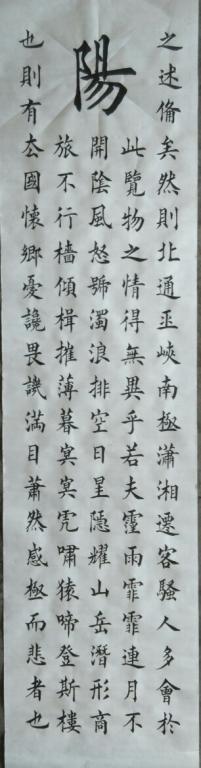 陽
之述備矣然則北通巫峽南極瀟湘遷客騷人多會於
此覽物之情得無異乎若夫霪雨霏霏連月不
開陰風怒號濁浪排空日星隱耀山岳潛形商
旅不行檣傾楫摧薄暮冥冥虎嘯猿啼登斯樓
也則有去國懷鄉憂讒畏譏滿目蕭然感極而悲者也